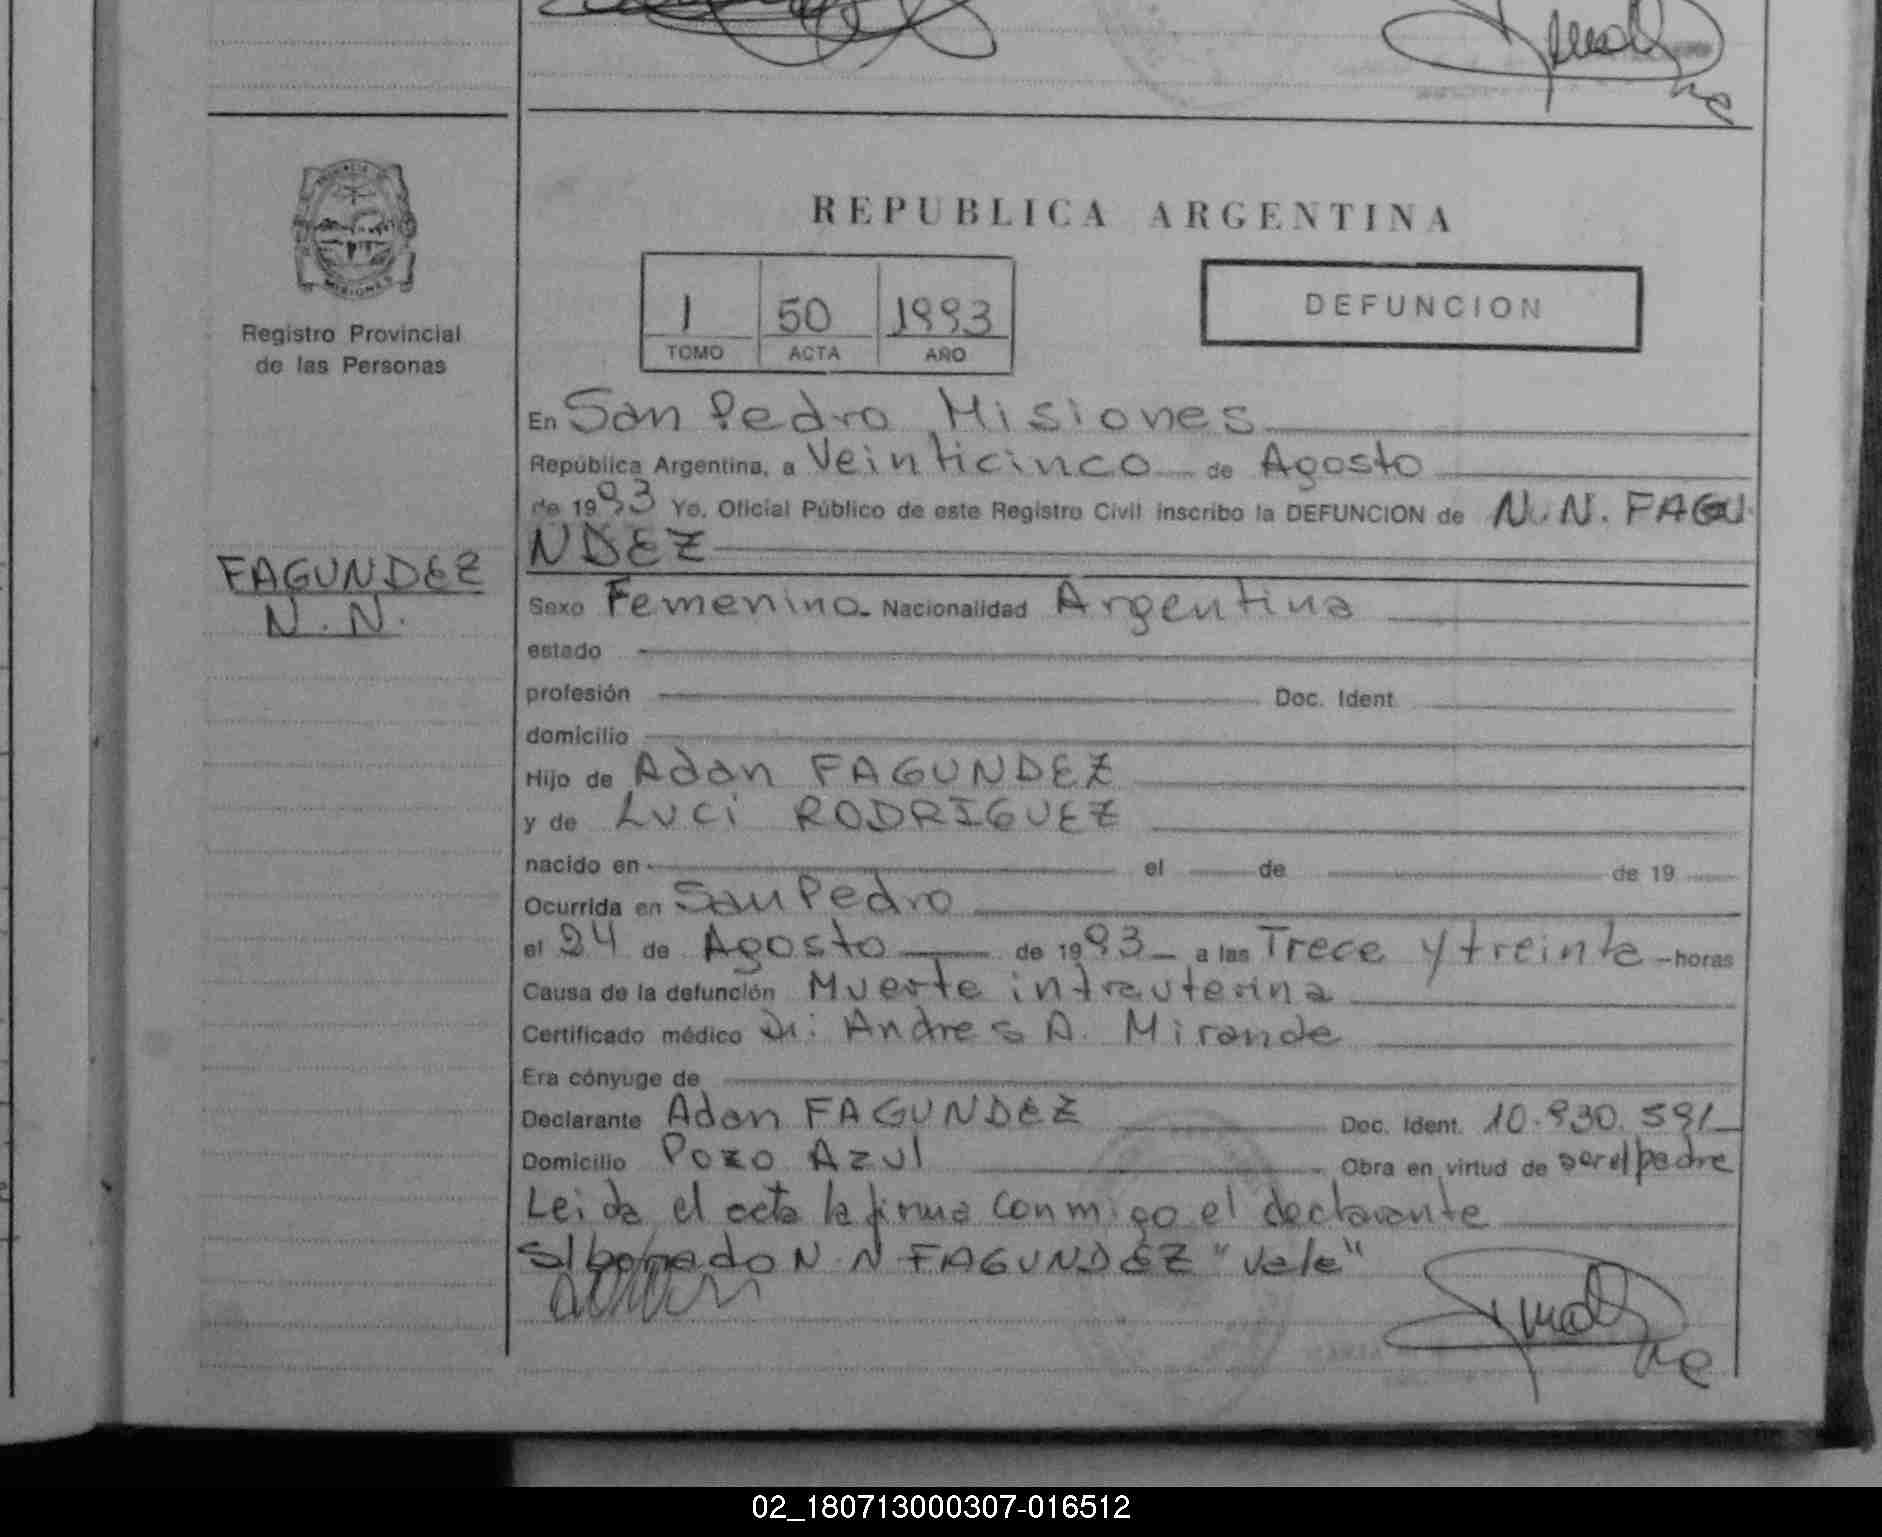 REPUBLICA ARGENTINA
1 50 1993
TOMO ACTA AÑO
DEFUNCION
MISIONES
Registro Provincial
de las Personas
FAGUNDEZ
N.N.
En San Pedro Misiones
República Argentina, a Veinticinco de Agosto
de 1993 Yo, Oficial Público de este Registro Civil inscribo la DEFUNCION de N.N. FAGU
NDEZ
Sexo Femenino Nacionalidad Argentina
estado
profesión Doc. Ident.
domicilio
Hijo de Adan FAGUNDEZ
y de Luci RODRIGUEZ
nacido en el de de 19
Ocurrida en San Pedro
el 24 de Agosto de 1993 a las Trece y treinta horas
Causa de la defunción Muerte intrauterina
Certificado médico Dr: Andres A. Mirande
Era cónyuge de
Declarante Adan FAGUNDEZ Doc. Ident. 10.930.591
Domicilio Pozo Azul Obra en virtud de ser el padre
Leida el acta la firma conmigo el declarante
S/borrado N.N FAGUNDEZ "Vale"
02_180713000307-016512